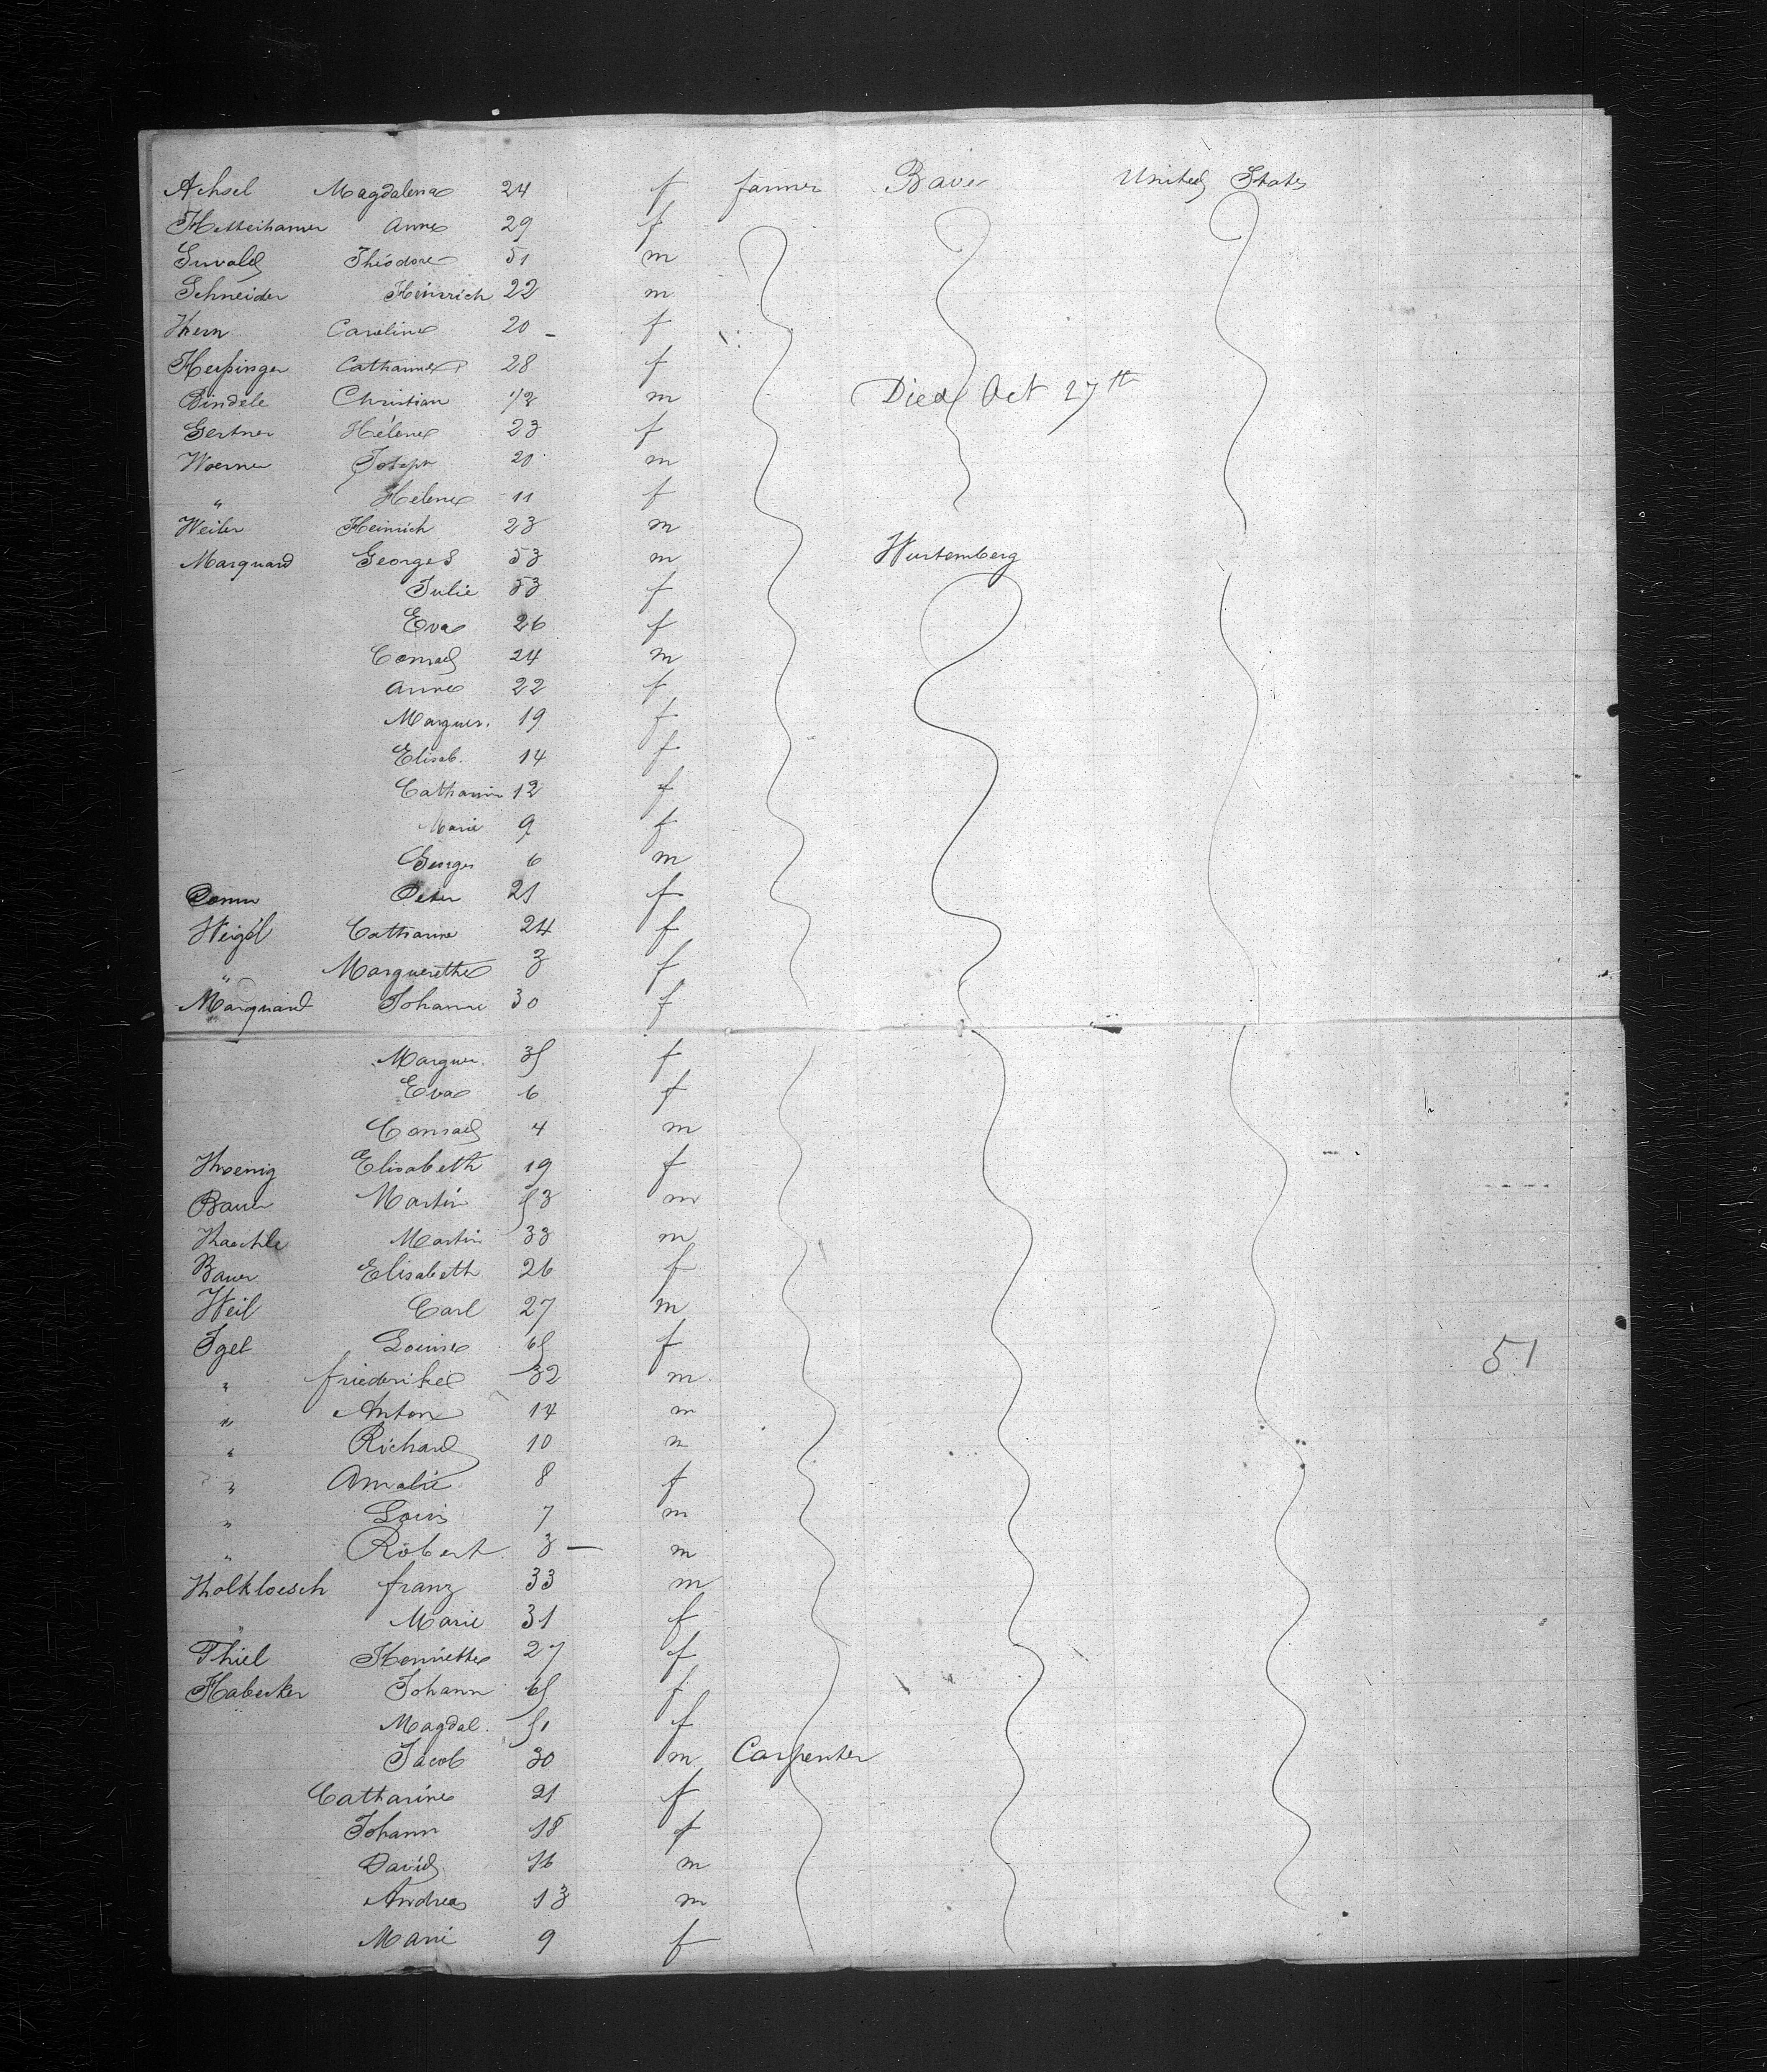 Achsel Magdalena 24 f farmer Bave United States
Anna 29 f
Théodore 51 m
Schneider Heinrich 22 m
Kern Caroline 20 - f
Catharine 28 f
Bindele Christian 1/2 m Died Oct 27th
Gertner Hélène 23 f
Woerner Joseph 20 m
" Hélène 11 f
Weiler Heinrich 23 m
Marquard Georges 53 m Wurtemberg
Julie 53 f
Eva 26 f
Conrad 24 m
Anna 22 f
Marguer. 19 f
Elisab. 14 f
Catharin 12 f
Marie 9 f
Georges 6 m
Peter 21 f
Weigel Catharine 24 f
" Marguerethe 3 f
Marquard Johanne 30 f
Marguer. 35 f
Eva 6 f
Conrad 4 m
Koenig Elisabeth 19 f
Bauer Martin 53 m
Kaechle Martin 33 m
Bauer Elisabeth 26 f
Weil Carl 27 m
Igel Louise 65 f
51
" friederike 32 m
" Anton 14 m
" Richard 10 m
" Amalie 8 f
" Louis 7 m
" Robert 3 — m
Kolkloesch franz 33 m
" Marie 31 f
Thiel Henriette 27 f
Habecker Johann 65 f
Magdal. 51 f
Jacob 30 m Carpenter
Catharine 21 f
Johann 18 f
David 16 m
Andreas 13 m
Marie 9 f